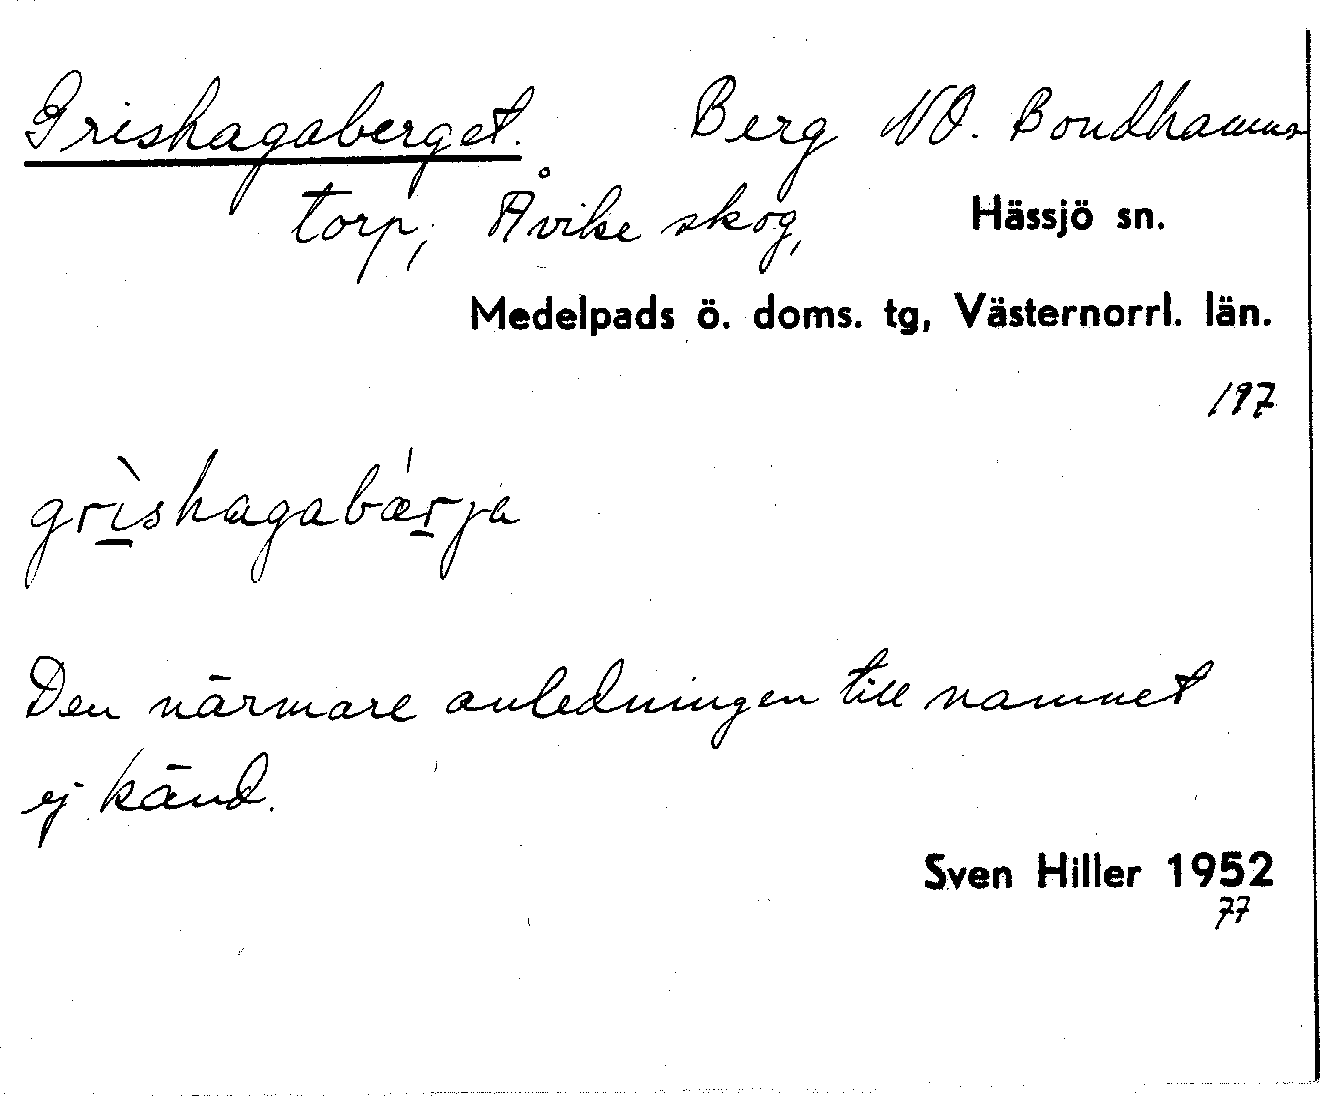 Grishagaberget. Berg NO. Bondhamns
torp, Åvike skog, Hässjö sn.
Medelpads ö. doms. tg, Västernorrl. län.
197
grì̲shagabæŕ̲ja
Den närmare anledningen till namnet
ej känd.
Sven Hiller 1952
77